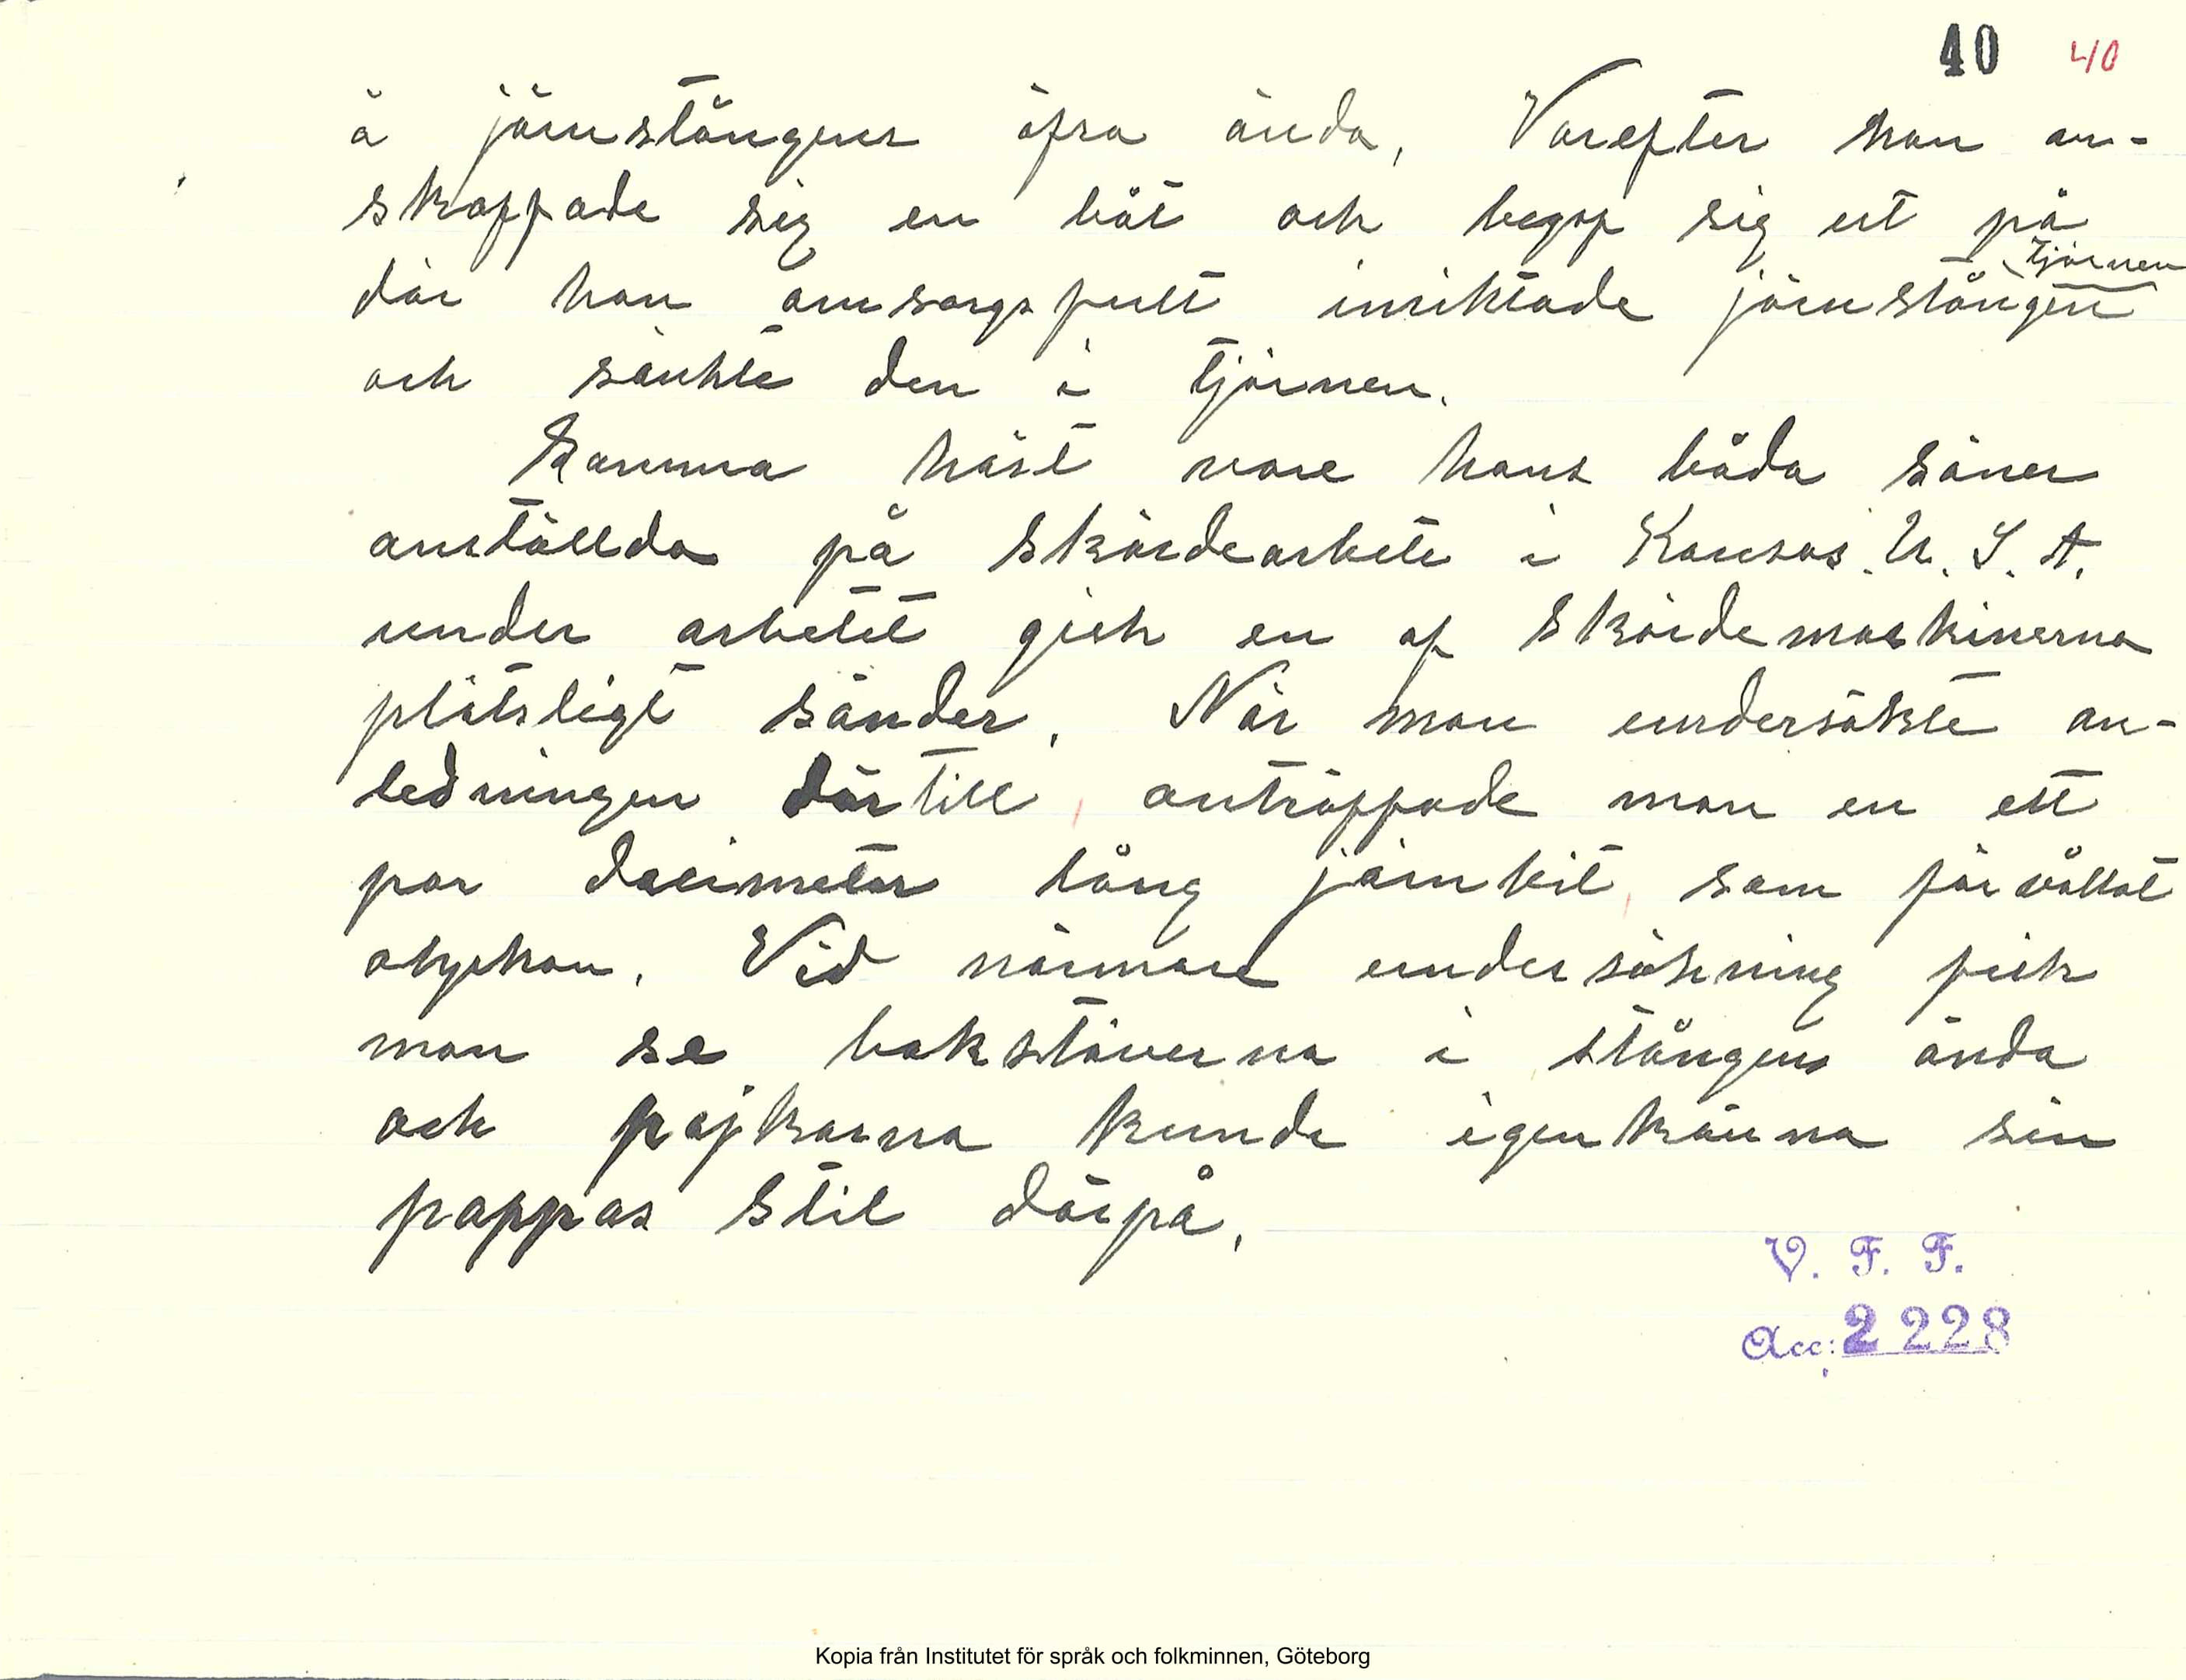 40 40
å järnstångens öfra ända, Varefter han an-
skaffade sig en båt och begaf sig ut på
tjärnen
där han omsorgsfullt inriktade järnstången
och sänkte den i tjärnen.
Samma höst vore hans båda söner
anställda på skördearbete i Kansas. U. S. A.
under arbetet gick en af skördemaskinerna
plötsligt sönder. När man undersökte an-
ledningen därtill, anträffade man en ett
par decimeter lång järnbit, som förvållat
olyckan. Vid närmare undersökning fick
man se bokstäverna i stångens ända
och pojkarna kunde igenkänna sin
pappas stil därpå.
V. F. F.
Acc: 2228
Kopia från Institutet för språk och folkminnen, Göteborg